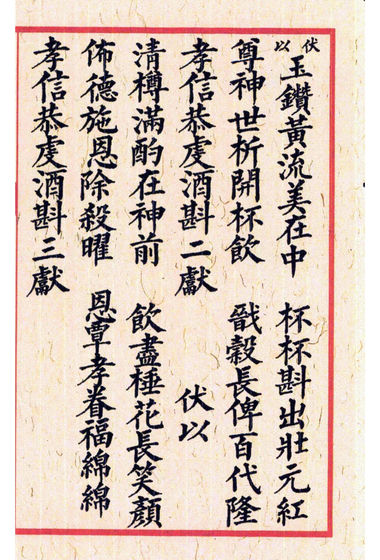 伏以 玉鑽黃流美在中 杯杯斟出壯元紅
尊神世析開杯飲 戩穀長俾百代隆
孝信恭虔酒斟二獻 伏以
清樽滿酌在神前 飲盡棰花長笑顏
佈德施恩除殺曜 恩覃孝眷福綿綿
孝信恭虔酒斟三獻